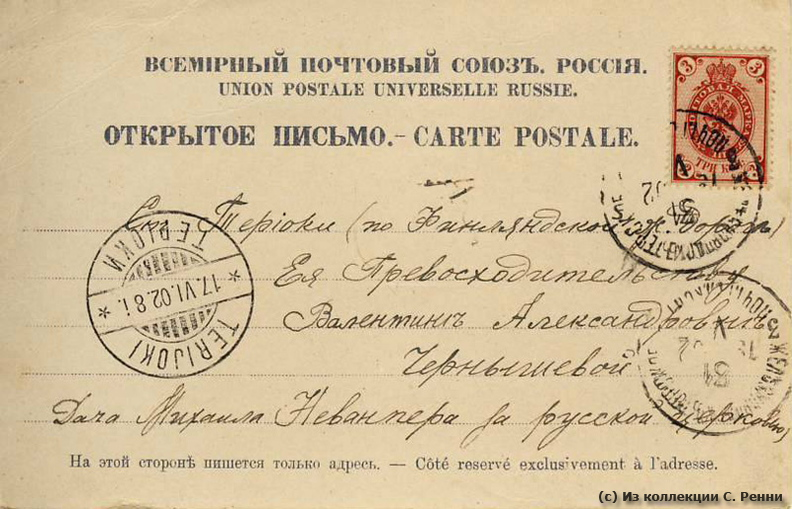 ВСЕМІРНЫЙ ПОЧТОВЫЙ СОЮЗЪ. РОССІЯ.
UNION POSTALE UNIVERSELLE RUSSIE.
ОТКРЫТОЕ ПИСЬМО.- CARTE POSTALE.
3 3
ПОЧТОВАЯ МАРКА
ТРИ КОП.
Ст. Теріоки (по Финляндской ж. дорогѣ)
Ея Превосходительству
Валентинѣ Александровнѣ
Чернышевой
Дача Михаила Неванпера за русской церковью
ТЕРІОКИ
17.VI.02.8 i.
TERIJOKI
На этой сторонѣ пишется только адресъ. — Côté reservé exclusivement à l'adresse.
(c) Из коллекции С. Ренни